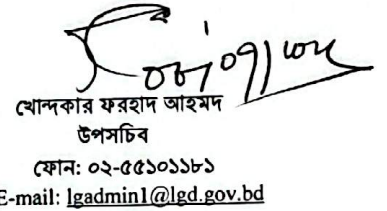 খোন্দকার ফরহাদ আহমদ
উপসচিব
ফোন: ০২-৫৫১০১১৮১
E-mail: lgadmin1@lgd.gov.bd